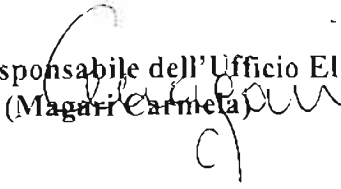 sponsabile dell'Ufficio El
(Magari Carmela)